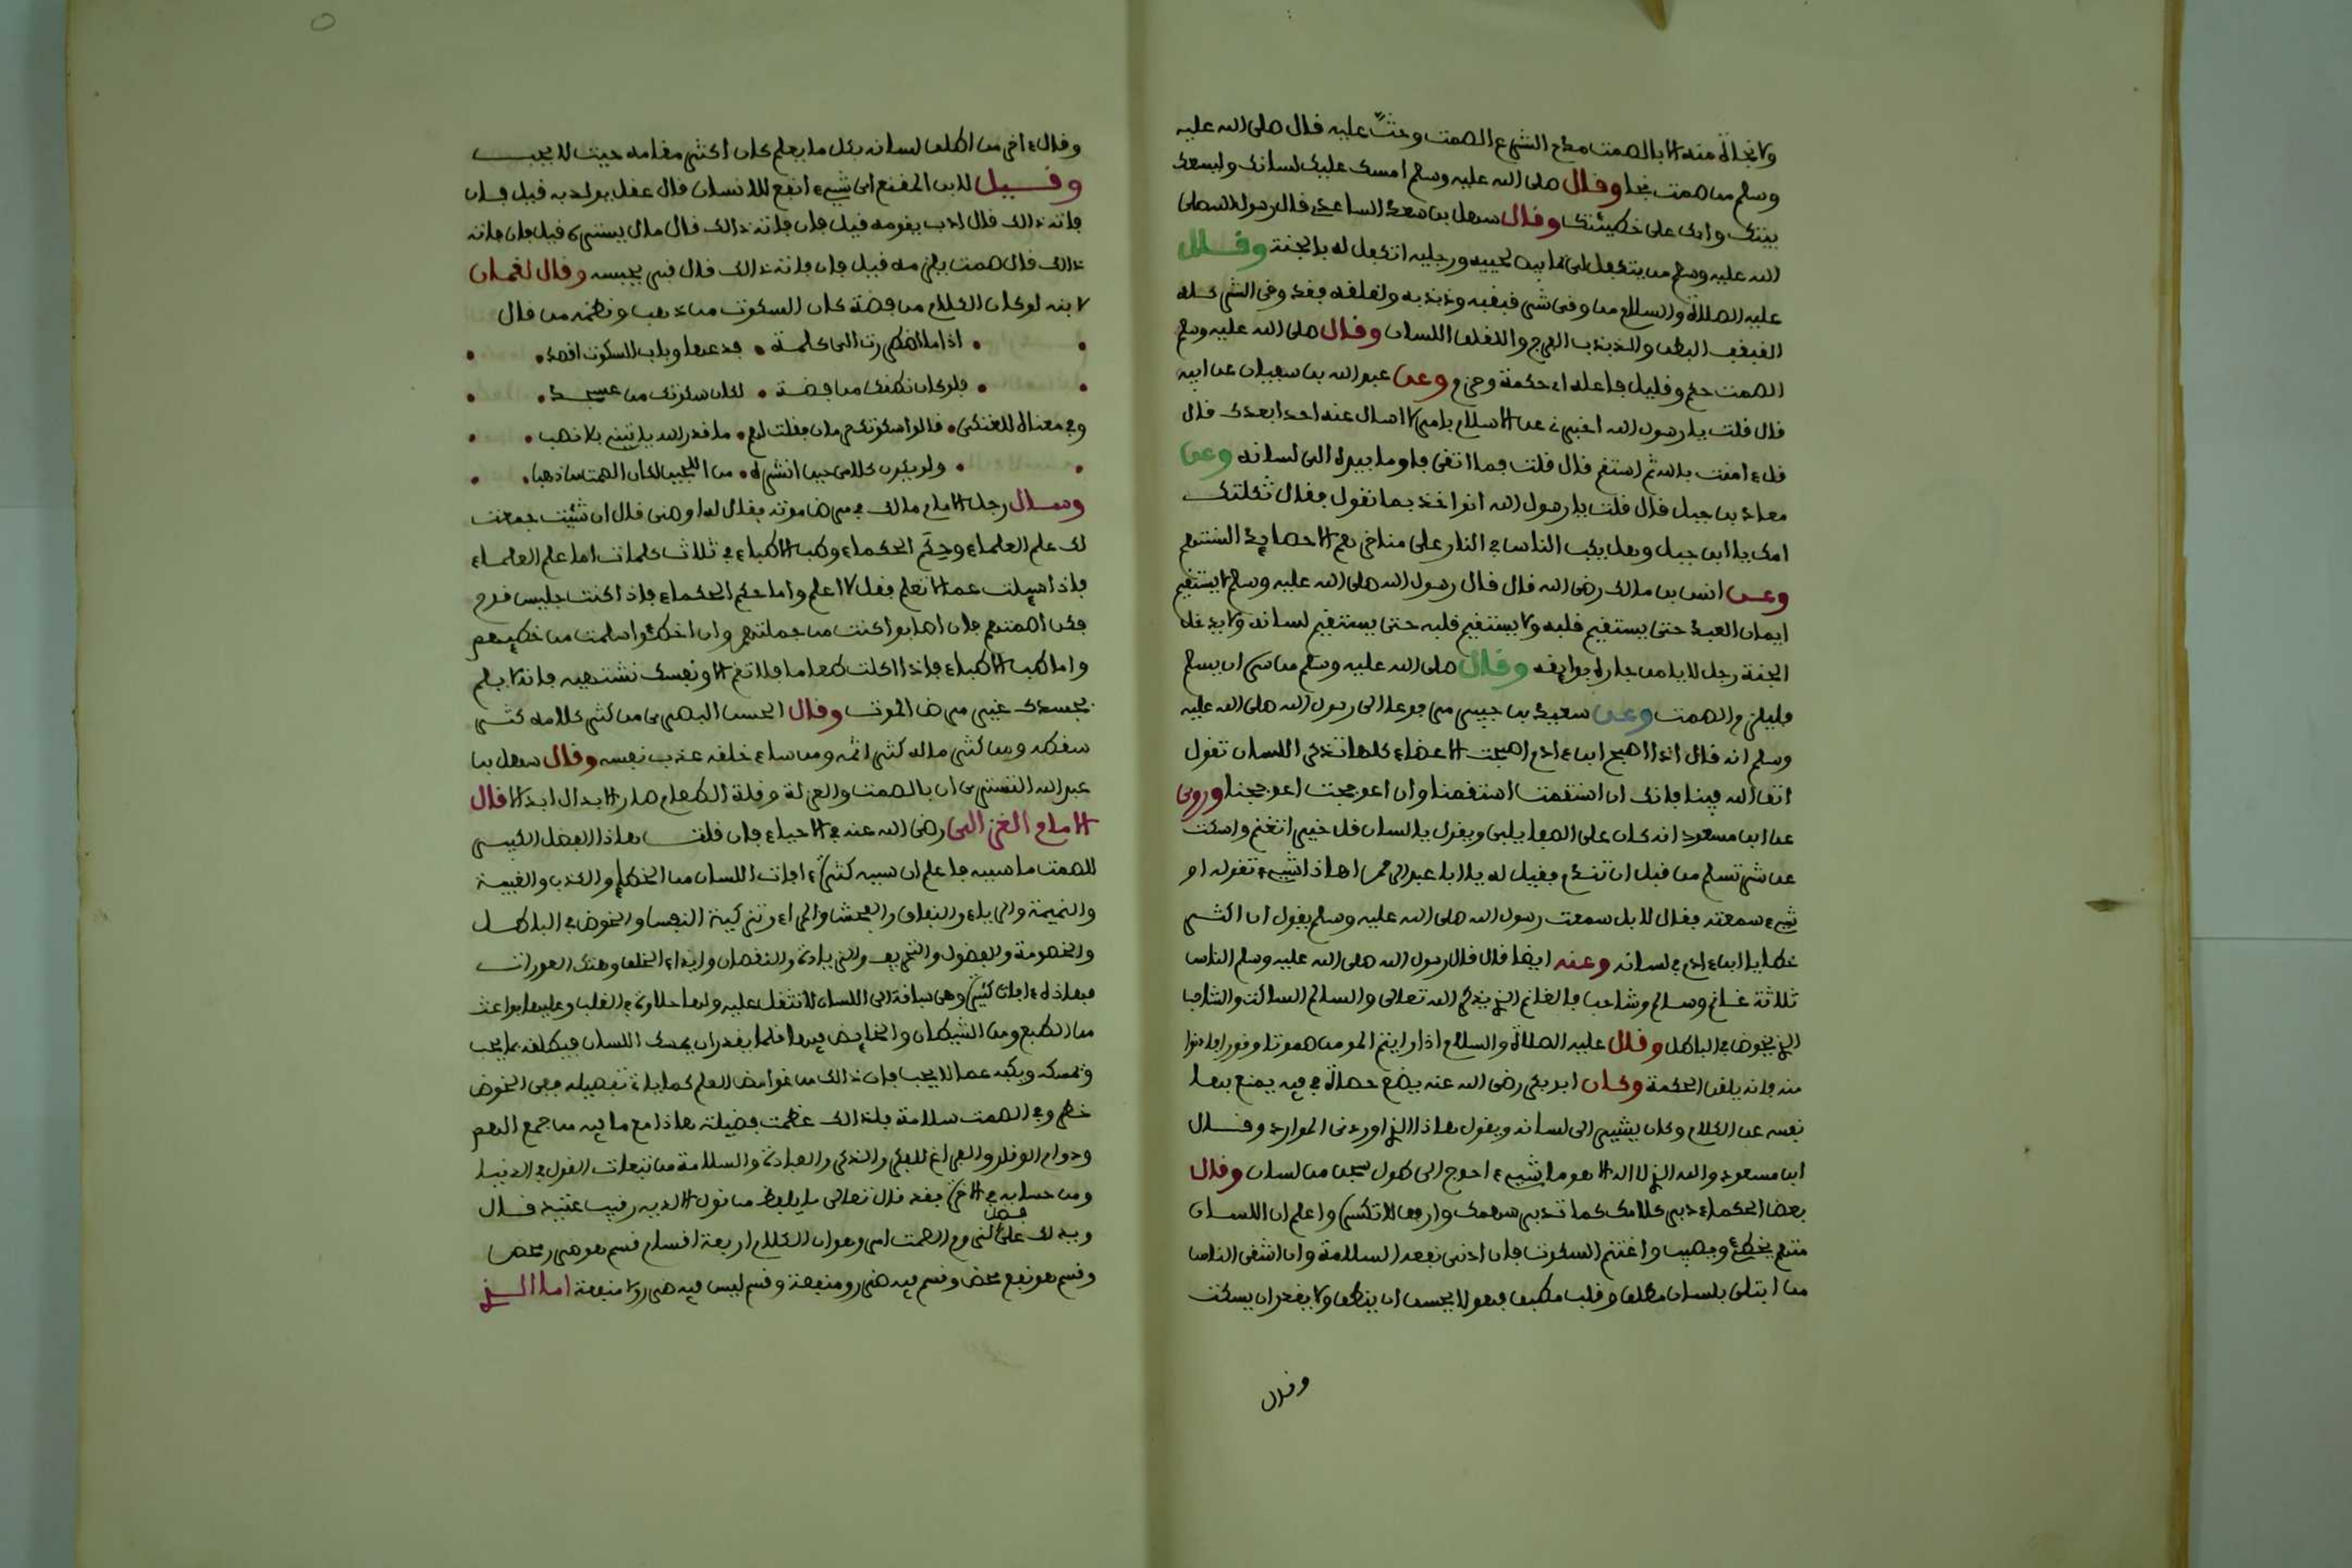 ولا نجاة منه الا بالصمت مدح الشرع الصمت وحثّ عليه فقال صلى الله عليه
وسلم من صمت نجا وقال صلى الله عليه وسلم امسك عليك لسانك وليسعك
بيتك وابك على خطيئتك وقال سهل بن سعد الساعدي قال رسول الله صلى
الله عليه وسلم من يتكفل لي بما بين لحييه ورجليه اتكفل له بالجنة وقال
عليه الصلاة والسلام من وقي شر قبقبه وذبذبه ولقلقه فقد وقي الشر كله
القبقب البطن والذبذب الفرج واللقلق اللسان وقال صلى الله عليه وسلم
الصمت حكم وقليل فاعله اي حكمة وحزم وعن عبد الله بن سفيان عن ابيه
قال قلت يا رسول الله اخبرني عن الاسلام بامر لا اسال عنه احدا بعدك قال
قل ءامنت بالله ثم استقم قال قلت فما اتقي فاوما بيده الى لسانه وعن
معاذ بن جبل قال قلت يا رسول الله انواخذ بما نقول فقال ثكلتك
امك يا ابن جبل وهل يكب الناس في النار على مناخرهم الا حصايد السنتهم
وعن انس بن مالك رضي الله قال قال رسول الله صلى الله عليه وسلم لا يستقيم
ايمان العبد حتى يستقيم قلبه ولا يستقيم قلبه حتى يستقيم لسانه ولا يدخل
الجنة رجل لا يامن جاره بوايقه وقال صلى الله عليه وسلم من سره ان يسلم
فليلزم الصمت وعن سعيد بن جبير مرفوعا الى رسول الله صلى الله عليه
وسلم انه قال اذا اصبح ابن ءادم اصبحت الاعضاء كلها تذكر اللسان تقول
اتق الله فينا فانك ان استقمت استقمنا وان اعوججت اعوججنا وروي
عن ابن مسعود انه كان على الصفا يلبي ويقول يا لسان قل خيرا تغنم واسكت
عن شر تسلم من قبل ان تندم فقيل له يا ابا عبد الرحمن اهاذا شيء تقوله او
شيء سمعته فقال لا بل سمعت رسول الله صلى الله عليه وسلم يقول ان اكثر
خطايا ابن ءادم في لسانه وعنه ايضا قال قال رسول الله صلى الله عليه وسلم الناس
ثلاثة غانم وسالم وشاجب فالغانم الذي يذكر الله تعالى والسالم الساكت والشاجب
الذي يخوض في الباطل وقال عليه الصلاة والسلام اذا رايتم المومن صموتا وقورا فادنوا
منه فانه يلقن الحكمة وكان ابو بكر رضي الله عنه يضع حصاة في فيه يمنع بها
نفسه عن الكلام وكان يشير الى لسانه ويقول هاذا الذي اوردني الموارد وقال
ابن مسعود والله الذي لا اله الا هو ما شيء احوج الى طول سجن من لسان وقال
بعض الحكماء دبر كلامك كما تدبر سهمك وارفق لا تكسر واعلم ان اللسان
متهم يخطئ ويصيب واغتنم السكوت فان ادنى نفعه السلامة وان اشقى الناس
من ابتلي بلسان مطلق وقلب مطبق فهو لا يحسن ان ينطق ولا يقدر ان يسكت
وقال
وقال ءاخر من اطلق لسانه بكل ما يعلم كان اكثر مقامه حيث لا يحب
وقيل لابن المقفع اي شيء انفع للانسان قال عقل يولد به قيل فان
فاته ذالك قال ادب يقومه قيل فان فاته ذالك قال مال يستره قيل فان فاته
ذالك قال صمت يلزمه قيل فان فاته ذالك قال قبر يحبسه وقال لقمان
لابنه لو كان الكلام من فضة كان السكوت من ذهب ونظمه من قال
اذا ما اضطررت الى كلمة فدعها وباب السكوت اقصد
فلو كان نطقك من فضة لكان سكوتك من عسجد
وفي معناه للغنكي قالوا سكوتك حرمان فقلت لهم ما قدر الله ياتيني بلا نصب
ولو يكون كلامي حين انشره من اللجين لكان الصمت من ذهب
وسال رجل الامام مالك في مرض موته فقال له اوصني قال ان شئت جمعت
لك علم العلماء وحكم الحكماء وطب الاطباء في ثلاث كلمات اما علم العلماء
فاذا سيلت عما لا تعلم فقل لا اعلم واما حكم الحكماء فاذا كنت جليس قوم
فكن اصمتهم فان اصابوا كنت من جملتهم وان اخطئوا سلمت من خطيهم
واما طب الاطباء فاذا اكلت طعاما فلا تقم الا ونفسك تشتهيه فانه لا يلم
بجسدك غير مرض الموت وقال الحسن البصري من كثر كلامه كثر
سقطه ومن كثر ماله كثر اثمه ومن ساء خلقه عذب نفسه وقال سهل بن
عبد الله التستري ان بالصمت والعزلة وقلة الطعام صار الابدال ابدالا قال
الامام الغزالي رضي الله عنه في الاحياء فان قلت هاذا الفضل الكبير
للصمت ما سببه فاعلم ان سببه كثرة ءافات اللسان من الخطإ والكذب والغيبة
والنميمة والرياء والنفاق والفحش والمراء وتزكية النفس والخوض في الباطل
والخصومة والفضول والتحريف والزيادة والنقصان وايذاء الخلق وهتك العورات
فهاذه ءافات كثيرة وهي سباقة الى اللسان لا تثقل عليه ولها حلاوة في القلب وعليها بواعث
من الطبع ومن الشيطان والخايض فيها قلما يقدر ان يمسك اللسان فيطلقه بما يحب
ويمسكه ويكفه عما لا يحب فان ذالك من غوامض العلم كما ياتي تفصيله ففي الخوض
خطر وفي الصمت سلامة فلذالك عظمت فضيلته هاذا مع ما فيه من جمع الهم
ودوام الوقار والفراغ للفكر والذكر والعبادة والسلامة من تبعات القول في الدنيا
ومن حسابه في الاخرة فقد قال تعالى ما يلفظ من قول الا لديه رقيب عتيد قال
ويدلك على فضل لزوم الصمت امر وهو ان الكلام اربعة اقسام قسم هو ضرر محض
وقسم هو نفع محض وقسم فيه ضرر ومنفعة وقسم ليس فيه ضرر ولا منفعة اما الذي